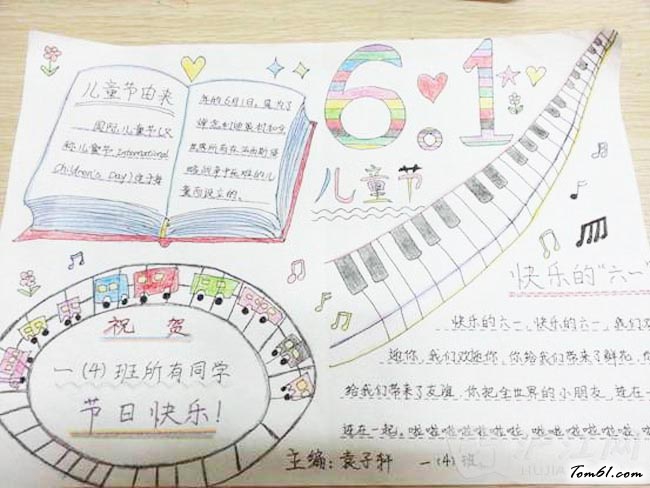 儿童节由来
国际儿童节(又
称儿童节International
Children's Day)定于每
年的6月1日。是为了
悼念利迪策村和全
世界所有在法西斯侵
略战争中死难的儿
童而设立的。
6.1
儿童节
祝 贺
一(4)班所有同学
节日快乐!
快乐的"六一"
快乐的六一,快乐的六一,我们欢
迎你,我们欢迎你,你给我们带来了鲜花,你
给我们带来了友谊,你把全世界的小朋友,连在一
连在一起。啦啦啦啦啦啦啦啦,啦啦啦啦啦啦啦啦
主编:袁子轩 一(4)班。
沪江网
HUJIA
Tom61.com